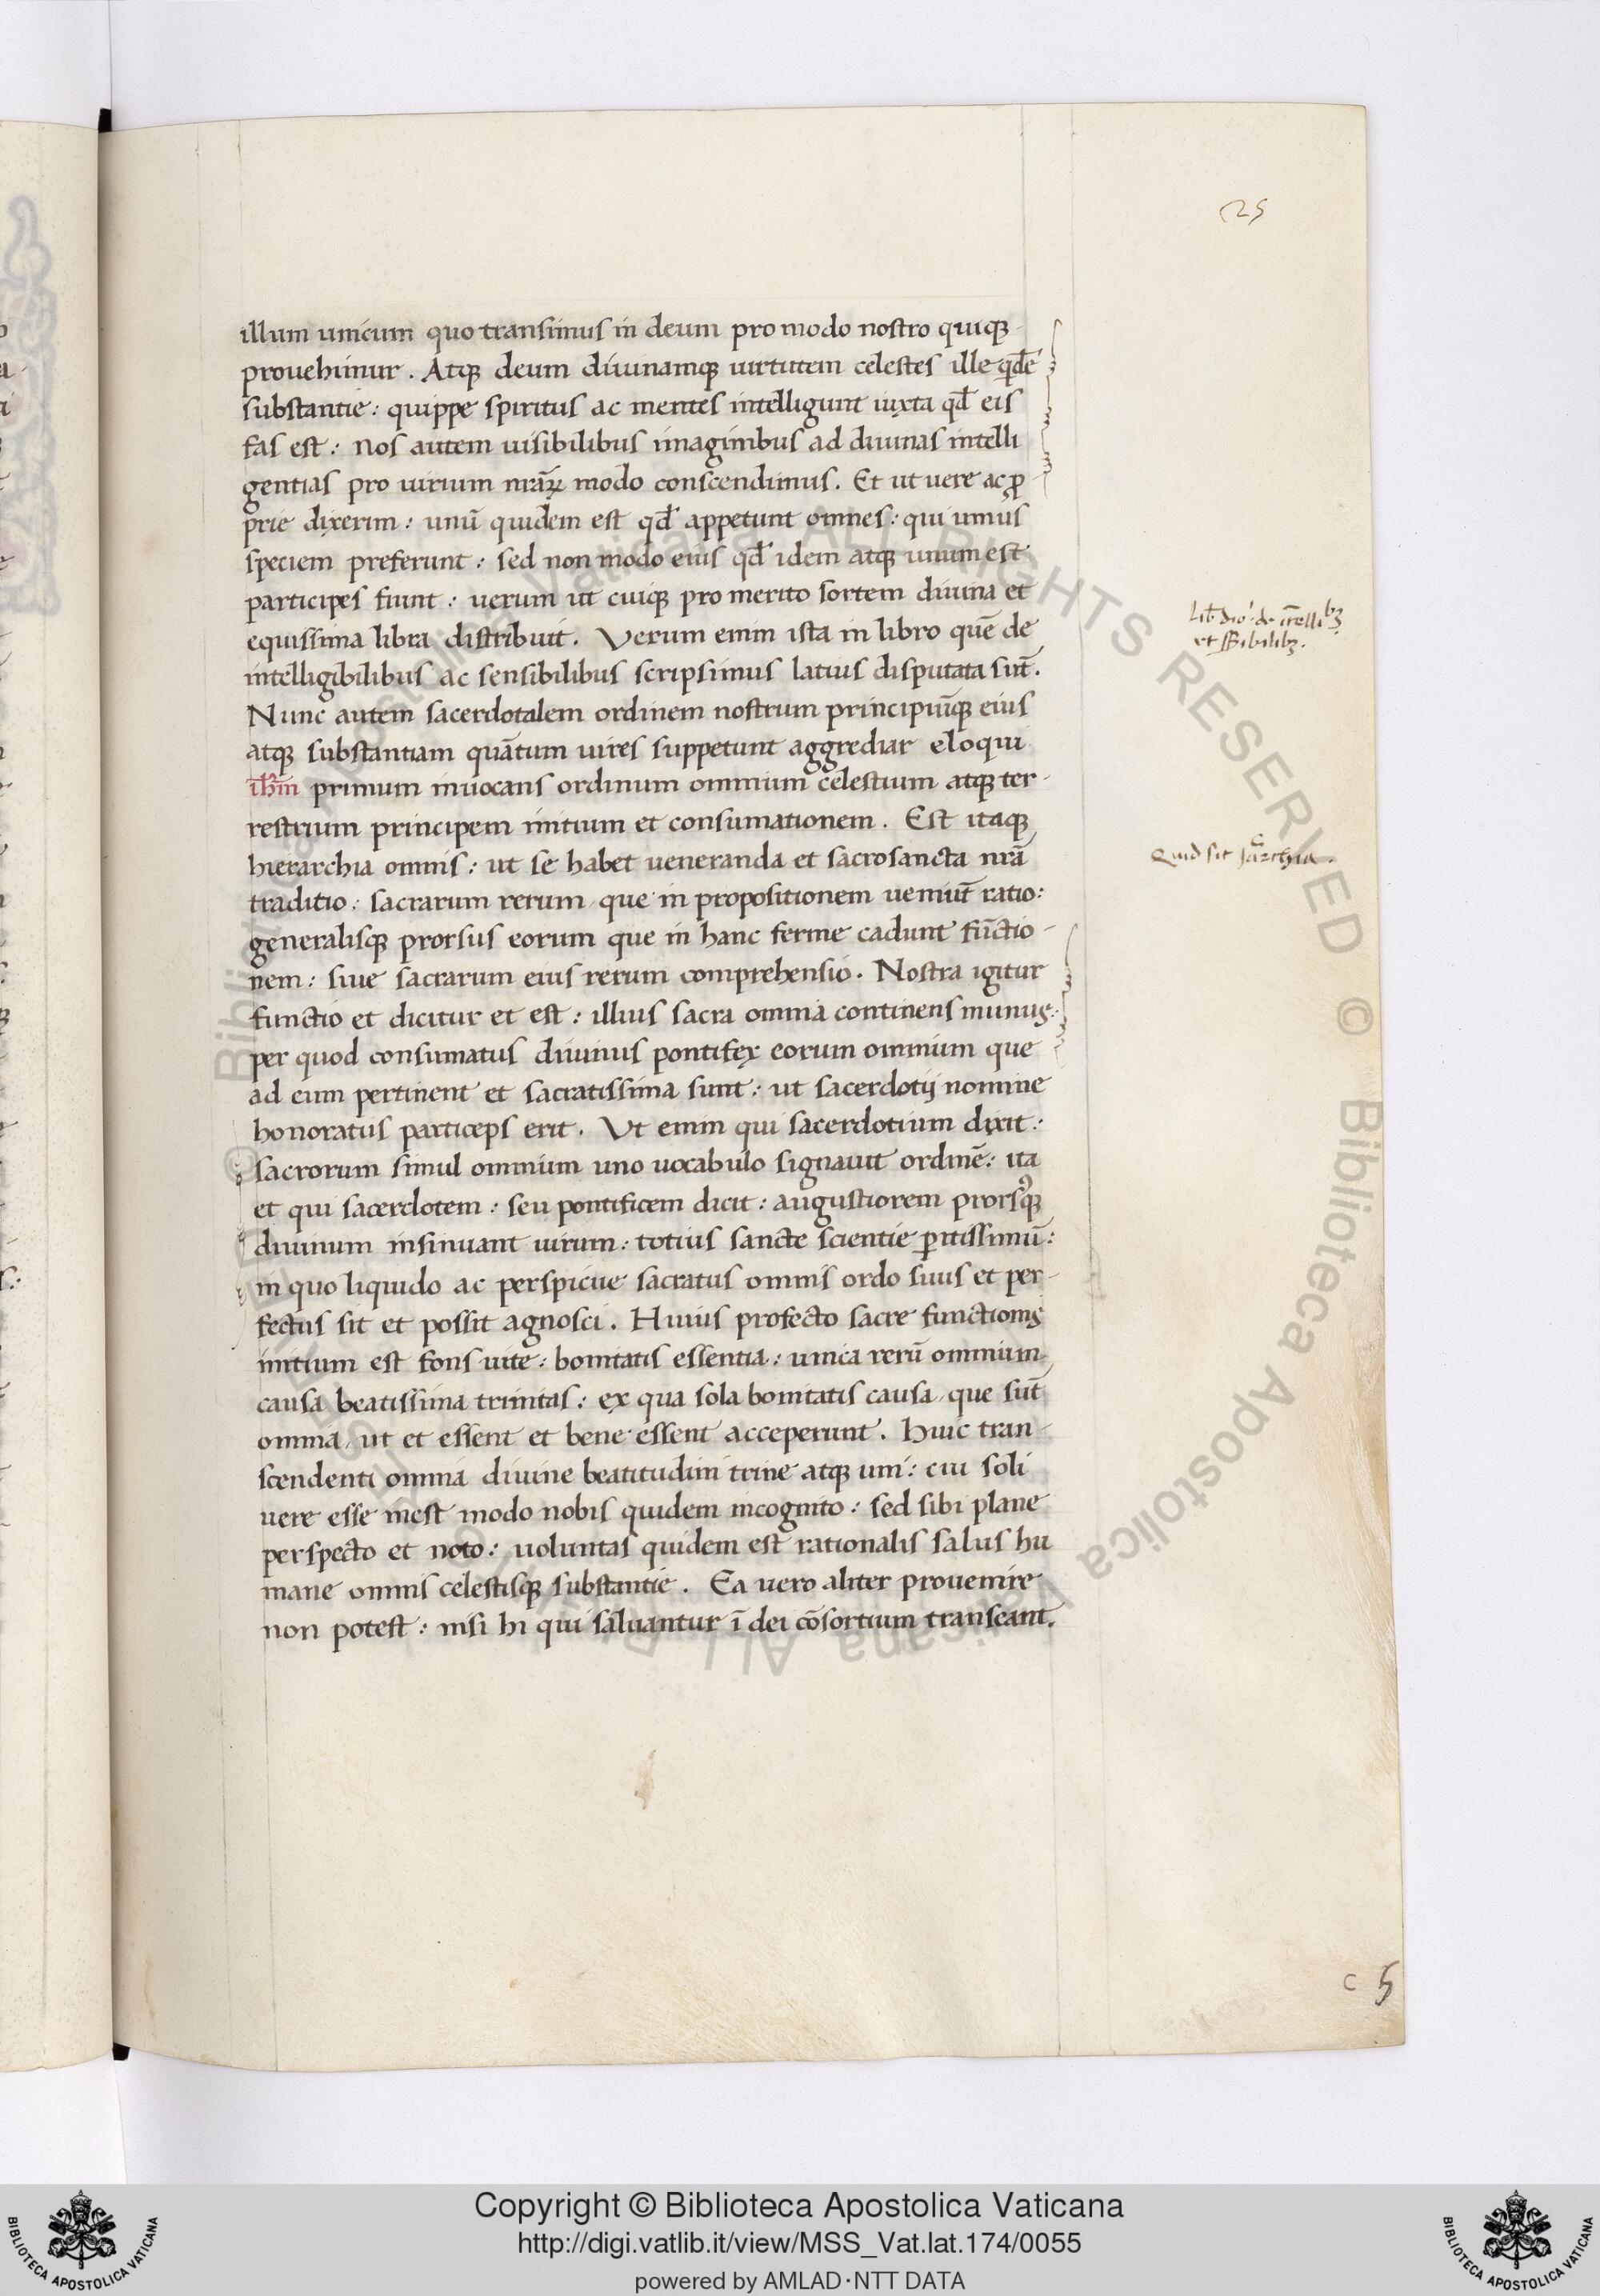 25
illum unicum quo transimus in deum pro modo nostro quiq̃
prouehimur. Atq̃ deum diuinamq̃ uirtutem celestes ille qͥdē
substantie: quippe spiritus ac mentes intelligunt iuxta qđ eis
fas est: nos autem uisibilibus imaginibus ad diuinas intelli
gentias pro uirium nr̄aꝝ modo conscendimus. Et ut uere ac ꝓ
prie dixerim: unū quidem est qđ appetunt omnes: qui unius
speciem preferunt: sed non modo eius qđ idem atq̃ unum est
participes fiunt: uerum ut cuiq̃ pro merito sortem diuina et
equissima libra distribuit. Verum enim ista in libro quē de
intelligibilibus ac sensibilibus scripsimus latius disputata sūt.
Nunc autem sacerdotalem ordinem nostrum principiūq̃ eius
atq̃ substantiam quātum uires suppetunt aggrediar eloqui
ihm̄ primum inuocans ordinum omnium celestium atq̃ ter-
restrium principem initium et consumationem. Est itaq̃
hierarchia omnis: ut se habet ueneranda et sacrosancta nr̄a
traditio: sacrarum rerum que in propositionem ueniūt ratio:
generalisq̃ prorsus eorum que in hanc ferme cadunt fūctio-
nem: siue sacrarum eius rerum comprehensio. Nostra igitur
functio et dicitur et est: illius sacra omnia continens munus:
per quod consumatus diuinus pontifex eorum omnium que
ad eum pertinent et sacratissima sunt: ut sacerdotij nomine
honoratus particeps erit. Vt enim qui sacerdotium dixit:
sacrorum simul omnium uno uocabulo signauit ordinē: ita
et qui sacerdotem: seu pontificem dicit: augustiorem prorsꝰq̃
diuinum insinuant uirum: totius sancte scientie ꝑitissimū:
in quo liquido ac perspicue sacratus omnis ordo suus et per-
fectus sit et possit agnosci. Huius profecto sacre functionis
initium est fons uite: bonitatis essentia: unica rerū omnium
causa beatissima trinitas: ex qua sola bonitatis causa que sūt
omnia, ut et essent et bene essent acceperunt. Huic tran-
scendenti omnia diuine beatitudini trine atq̃ uni: cui soli
uere esse inest modo nobis quidem incognito: sed sibi plane
perspecto et noto: uoluntas quidem est rationalis salus hu
mane omnis celestisq̃ substantie. Ea uero aliter prouenire
non potest: nisi hi qui saluantur ī dei cōsortium transeant.
et
Quid sit
c 5
© Biblioteca Apostolica Vaticana ALL RIGHTS RESERVED
Copyright © Biblioteca Apostolica Vaticana
http://digi.vatlib.it/view/MSS_Vat.lat.174/0055
powered by AMLAD·NTT DATA
BIBLIOTECA APOSTOLICA VATICANA
BIBLIOTECA APOSTOLICA VATICANA